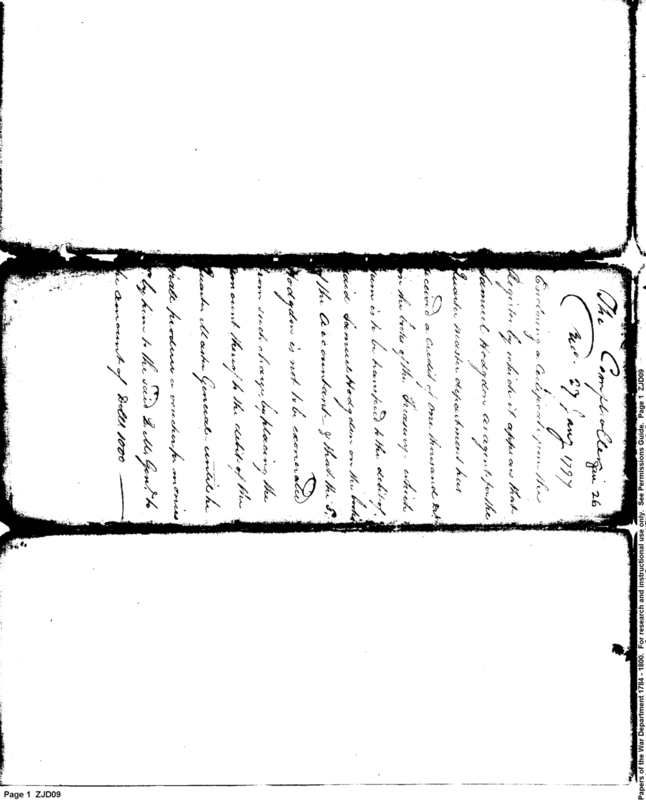 The Comptroller Jan 26
rec. 27 Jany 1797
Enclosing a Certificate from the
Register by which it appears that
Samuel Hodgdon as agent for the
Quarter Master department has
received a Credit of One thousand Drs
on the books of the Treasury which
sum is to be transferred to the debit of
said Samuel Hodgdon on the books
of the Accountant & that the S.
Hodgdon is not to be exonerated
from such charge by placing the
amount thereof to the debit of the
Quarter Master General until he
shall produce a voucher for monies
by him to the said Q. M. Genl. to
the amount of Dolls 1000
Papers of the War Department 1784 - 1800. For research and instructional use only. See Permissions Guide. Page 1 ZJD09
Page 1 ZJD09